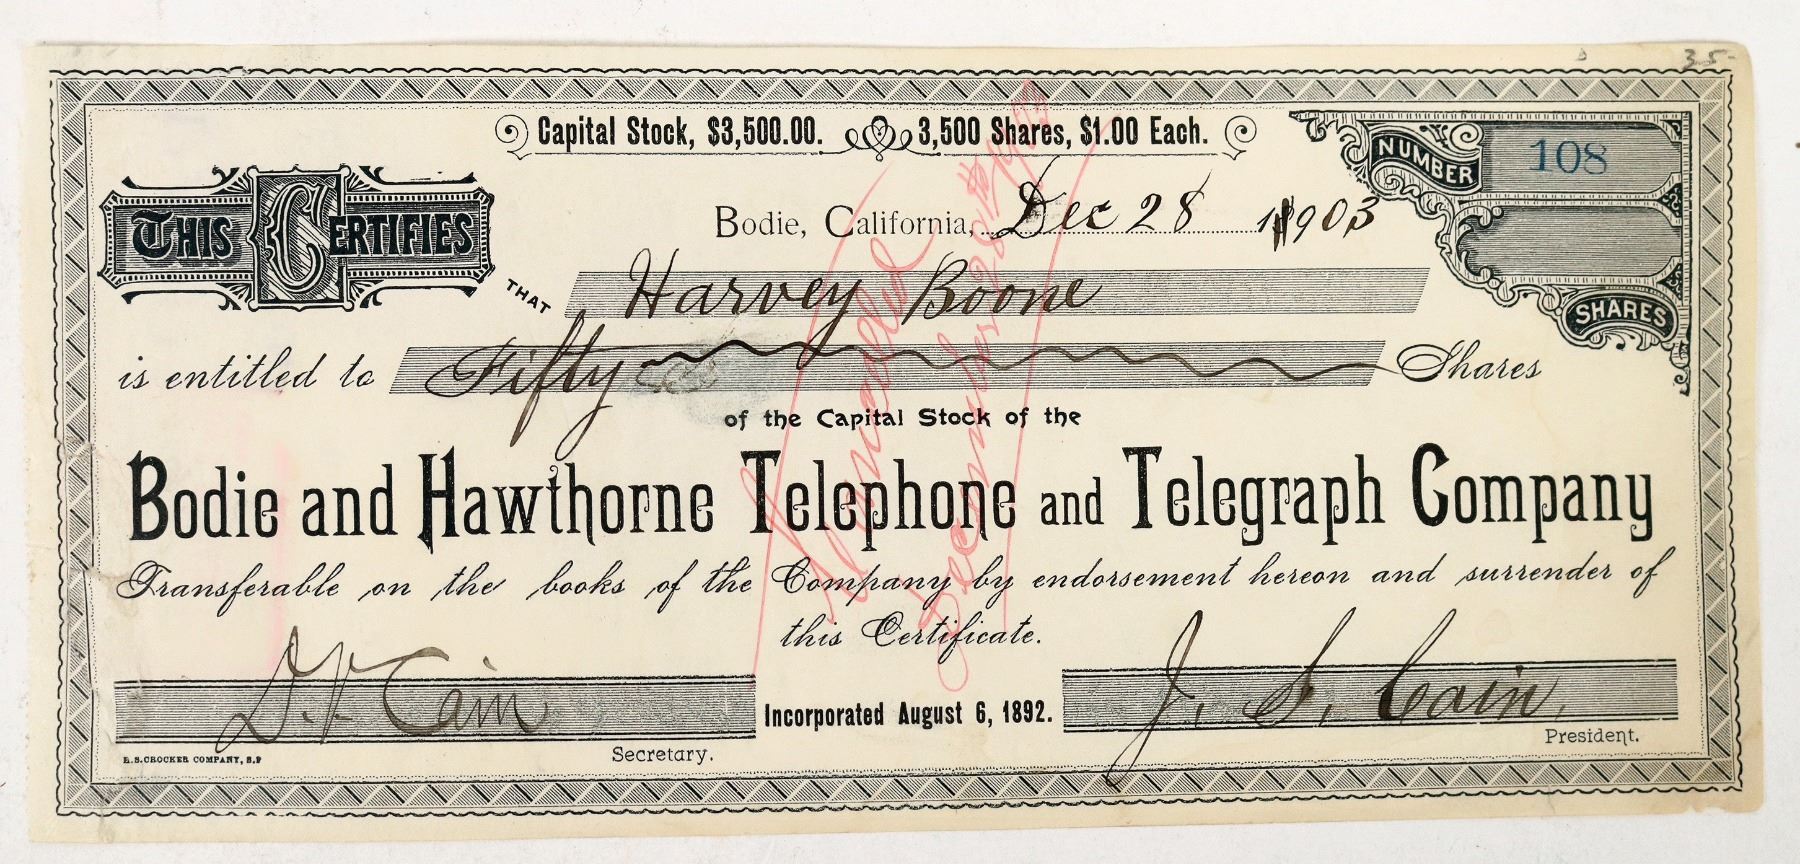 35-
Capital Stock, $3,500.00. 3,500 Shares, $1.00 Each.
NUMBER 108
Bodie, California, Dec 28 1903
THIS CERTIFIES
THAT Harvey Boone
SHARES
is entitled to Fifty Shares
of the Capital Stock of the
Bodie and Hawthorne Telephone and Telegraph Company
Transferable on the books of the Company by endorsement hereon and surrender of
this Certificate.
Cancelled
December 28th 1903
D. V. Cain
Incorporated August 6, 1892.
J. S. Cain.
H.S. CROCKER COMPANY, S.F
Secretary.
President.